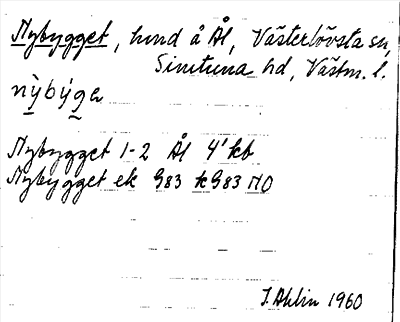 Nybygget, hmd å Ål, Västerlövsta sn,
Simtuna hd, Västm. l.
nỳbýgə
Nybygget 1-2 Ål 4' kb
Nybygget ek G83 k G83 NO
J. Ahlin 1960